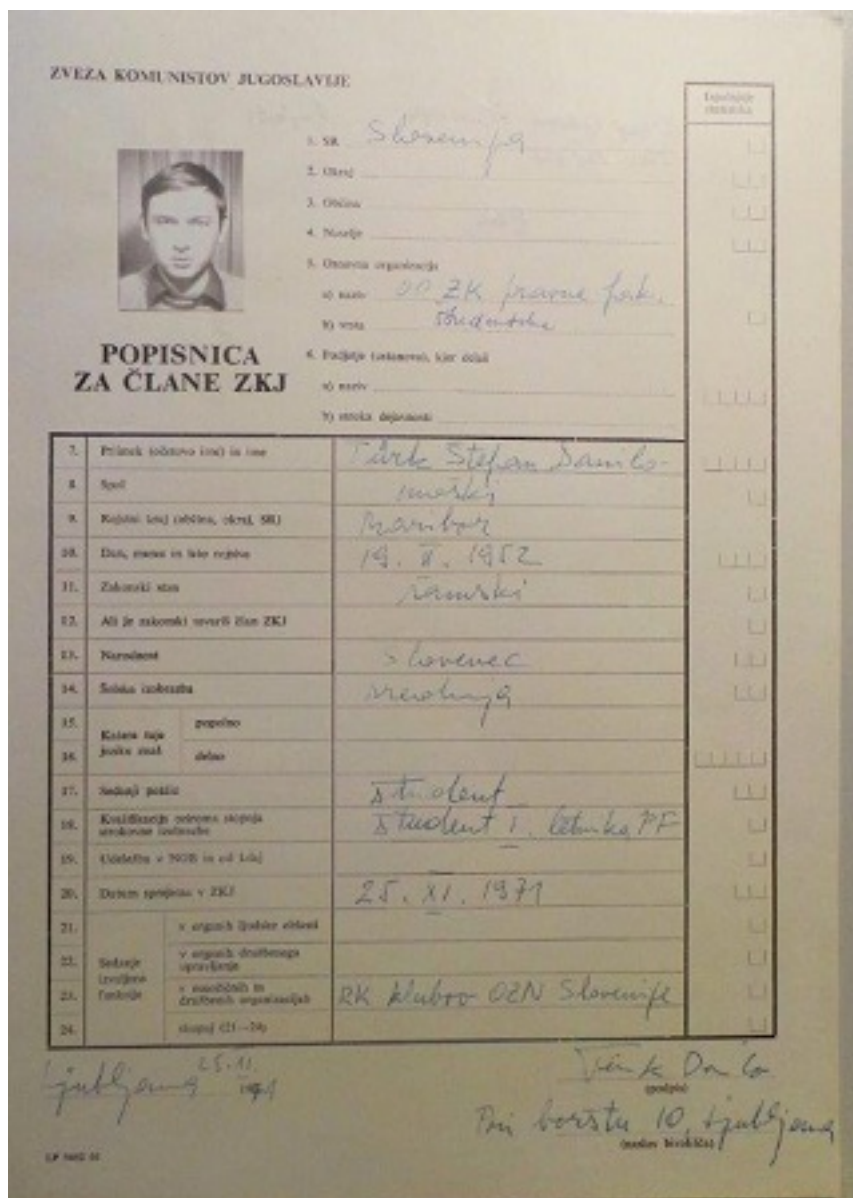 ZVEZA KOMUNISTOV JUGOSLAVIJE
Izpolnjuje statistika
1. SR Slovenija
2. Okraj
3. Občina
4. Naselje
5. Osnovna organizacija
a) naziv OO ZK pravne fak.
b) vrsta študentska
POPISNICA
ZA ČLANE ZKJ
6. Podjetje (ustanova), kjer dela
a) naziv
b) stroka dejavnosti
7. Priimek (očetovo ime) in ime Türk Štefan Danilo
8. Spol moški
9. Rojstni kraj (občina, okraj, SR) Maribor
10. Dan, mesec in leto rojstva 19. II. 1952
11. Zakonski stan samski
12. Ali je zakonski tovariš član ZKJ
13. Narodnost Slovenec
14. Šolska izobrazba srednja
15. Katere tuje jezike znaš popolno
16. delno
17. Sedanji poklic študent
18. Kvalifikacija oziroma stopnja strokovne izobrazbe študent I. letnika PF
19. Udeležba v NOB in od kdaj
20. Datum sprejema v ZKJ 25. XI. 1971
21. Sedanje izvoljene funkcije v organih ljudske oblasti
22. v organih družbenega upravljanja
23. v množičnih in družbenih organizacijah RK klubov OZN Slovenije
24. skupaj (21—24)
Ljubljana 25.11. 1971
Türk Danilo
(podpis)
Pri borštu 10, Ljubljana
(naslov bivališča)